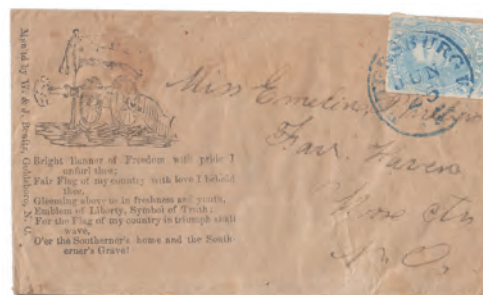 Manuf'd by W. & J. Bonitz, Goldsboro, N. C.
Bright Banner of Freedom with pride I
unfurl thee;
Fair Flag of my country with love I behold
thee,
Gleaming above us in freshness and youth,
Emblem of Liberty, Symbol of Truth;
For the Flag of my country in triumph shall
wave,
O'er the Southerner's home and the South-
erner's Grave!
Miss Emeline
Fair Haven
Moore
N. C.